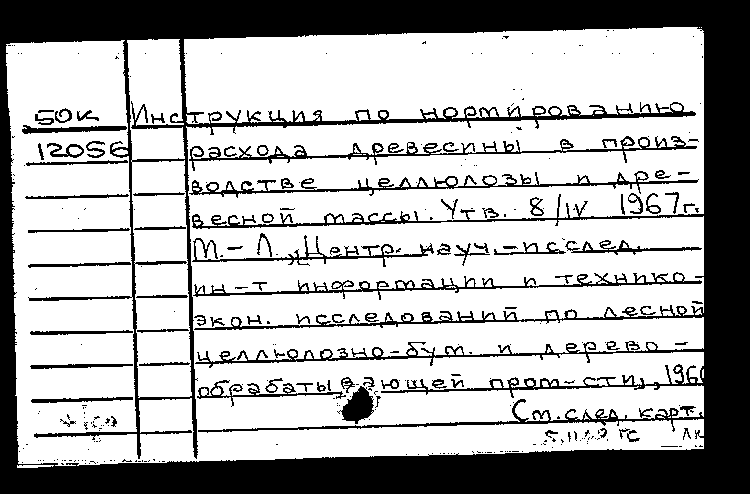 50к Инструкция по нормированию
12056 расхода древесины в произ-
водстве целлюлозы и дре-
весной массы. Утв. 8/IV 1967г.
М.-Л., Центр. науч.-исслед.
ин-т информации и технико-
экон. исследований по лесной
целлюлозно-бум. и дерево-
обрабатывающей пром-сти,
См. след. карт.